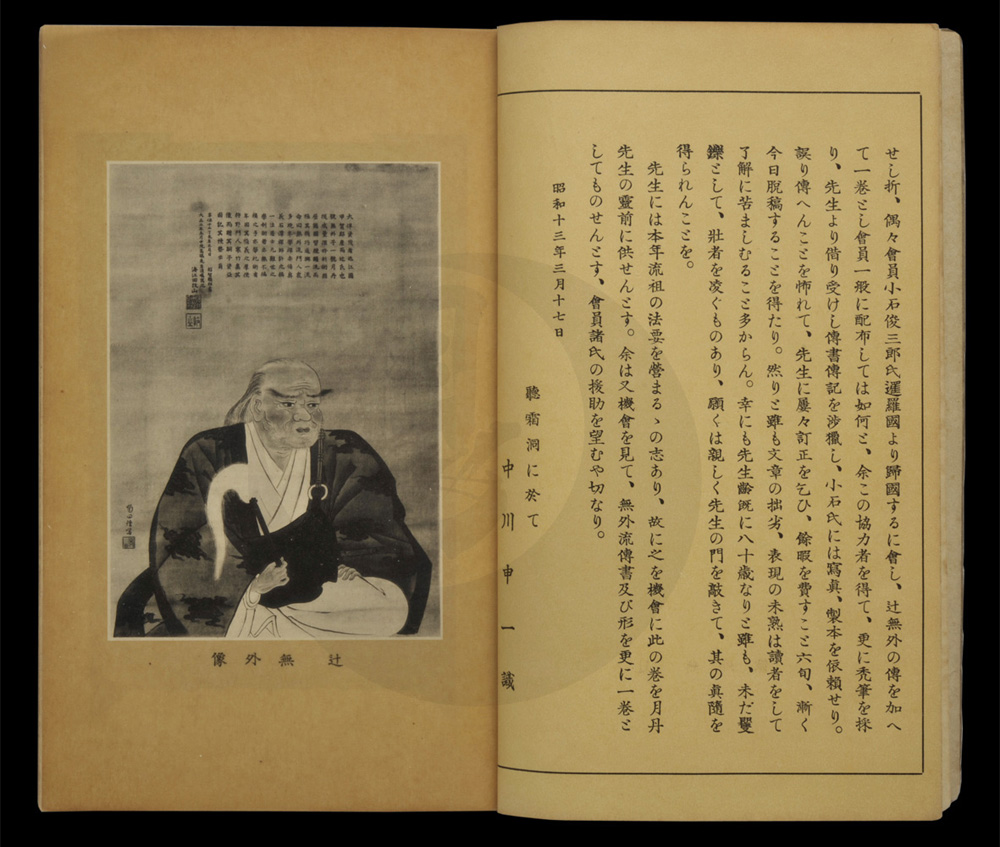 せし折、偶々會員小石俊三郎氏暹羅國より歸國するに會し、辻無外の傳を加へ
て一卷とし會員一般に配布しては如何と、余この協力者を得て、更に禿筆を採
り、先生より借り受けし傳書傳記を涉獵し、小石氏には寫眞、製本を依賴せり。
誤り傳へんことを怖れて、先生に屢々訂正を乞ひ、餘暇を費すこと六旬、漸く
今日脫稿することを得たり。然りと雖も文章の拙劣、表現の未熟は讀者をして
了解に苦ましむること多からん。幸にも先生齡旣に八十歲なりと雖も、未だ矍
鑠として、壯者を凌ぐものあり、願くは親しく先生の門を敲きて、其の眞隨を
得られんことを。
先生には本年流祖の法要を營まるゝの志あり、故に之を機會に此の卷を月丹
先生の靈前に供せんとす。余は又機會を見て、無外流傳書及び形を更に一卷と
してものせんとす、會員諸氏の援助を望むや切なり。
昭和十三年三月十七日
聽霜洞に於て
中川申一識
辻無外像